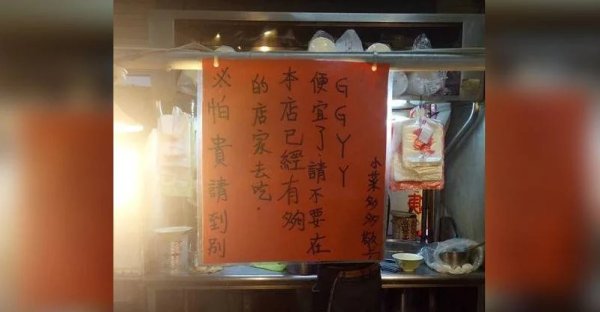 必怕貴請到別
的店家去吃.
本店已經有夠
便宜了請不要在
GGYY
小菜多多敬上